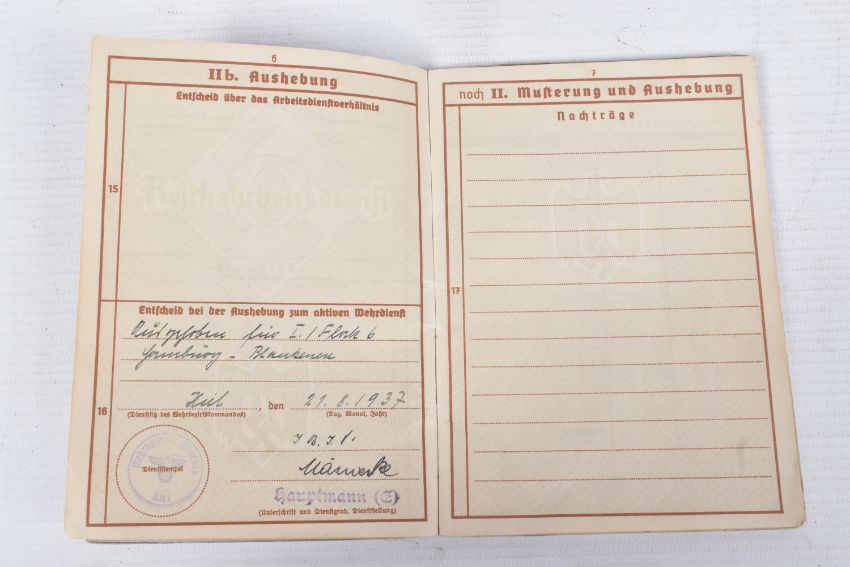 6
IIb. Aushebung
Entscheid über das Arbeitsdienstverhältnis
Reichsarbeitsdienst
15
Entscheid bei der Aushebung zum aktiven Wehrdienst
Ausgehoben für I./Flak 6
Hamburg - Blankenese
16
Kiel, den 21. 6. 1937
(Dienstsitz des Wehrbezirkskommandos) (Tag, Monat, Jahr)
Dienststempel
Kiel
Hauptmann (E)
(Unterschrift und Dienstgrad, Dienststellung)
7
noch II. Musterung und Aushebung
Nachträge
17